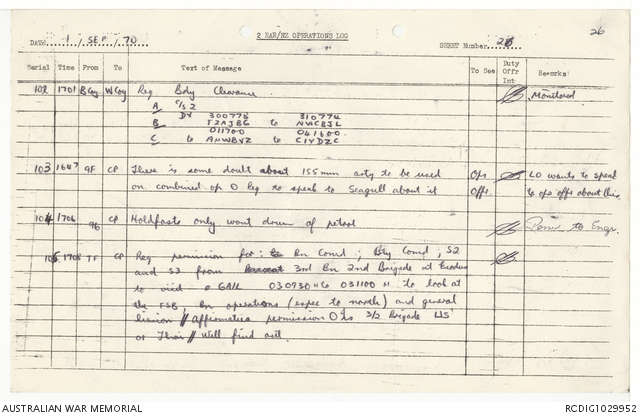 26
2 RAR/NZ OPERATIONS LOG
DATE 1 / SEP / 70
SHEET Number 26
Serial Time From To Text of Message To See Duty Offr Int Remarks
102 1701 B Coy W Coy Req Body Clearance Monitored
A C/S 2
DV 300775 310774
B TZAJBG to NVICBJL
011700 041600
C to ANWBVZ to CIYDZC
103 1647 9F CP There is some doubt about 155mm arty to be used Ops LO wants to speak
on combined op O Req to speak to Seagull about it Offr to ops offr about this
104 1706 96 CP Holdfasts only want drum of petrol to Engr.
105 1708 7F CP Req permission for: Bn Comd; Bty Comd; S2
and S3 from 3rd Bn 2nd Brigade at
to visit GAIL 030730 H to 031100 H to look at
the FSB, Bn operations (espec to north) and general
liaison // Affirmative permission O is 3/2 Brigade US
or Thai // Will find out.
AUSTRALIAN WAR MEMORIAL
RCDIG1029952